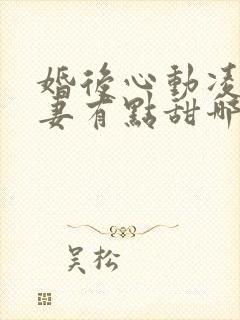 婚後心動凌
妻有點甜哪
吴松